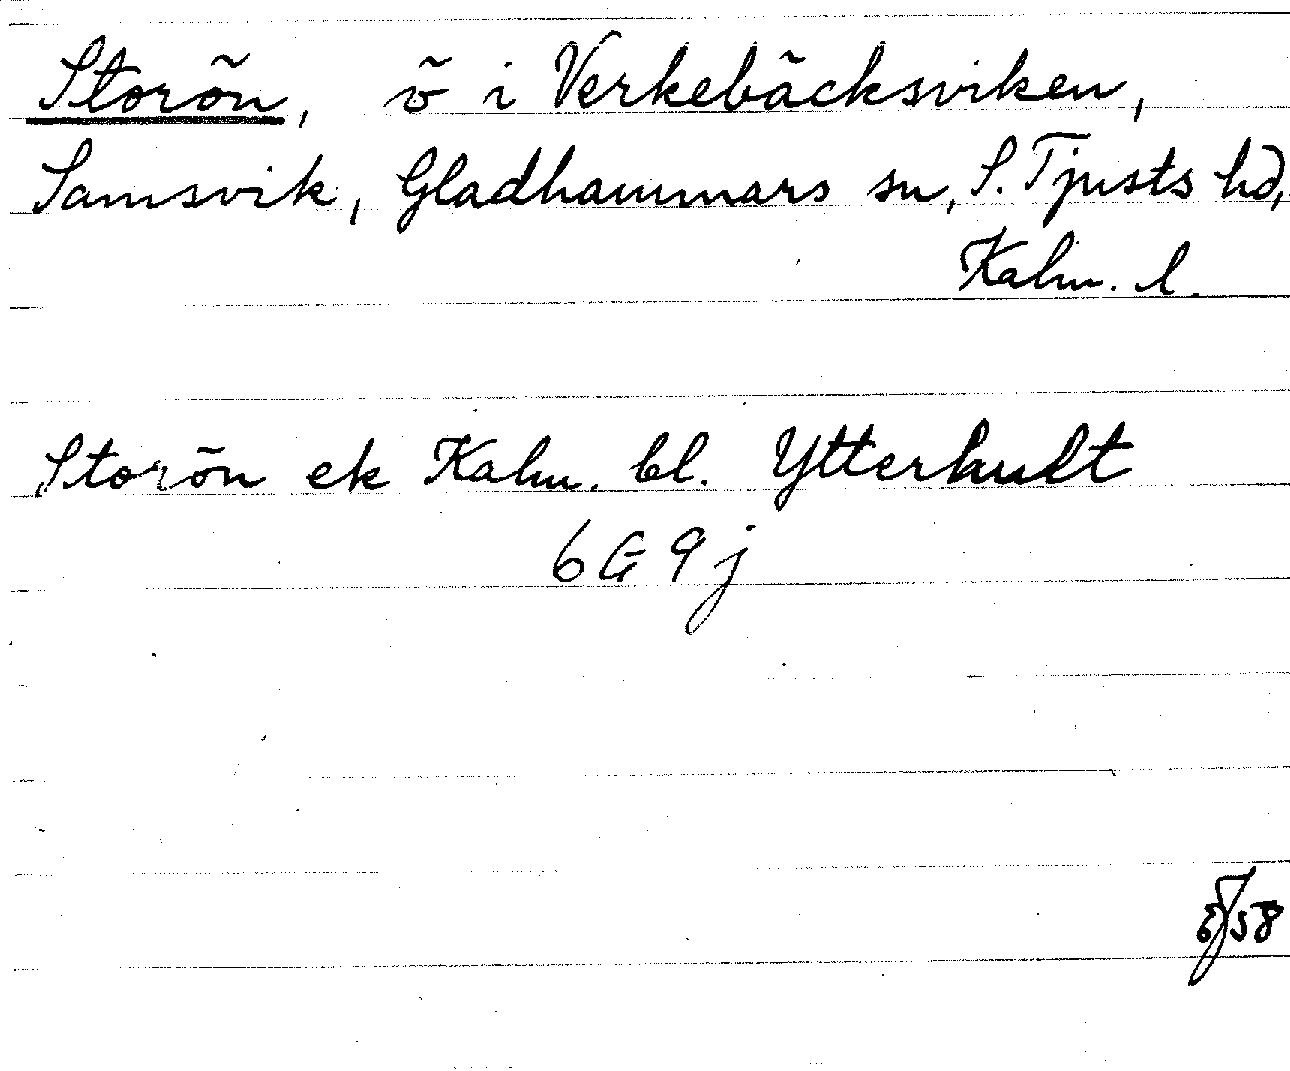 Storön, ö i Verkebäcksviken,
Samsvik, Gladhammars sn, S. Tjusts hd,
Kalm. l.
Storön ek Kalm. bl. Ytterhult
6G9j
58